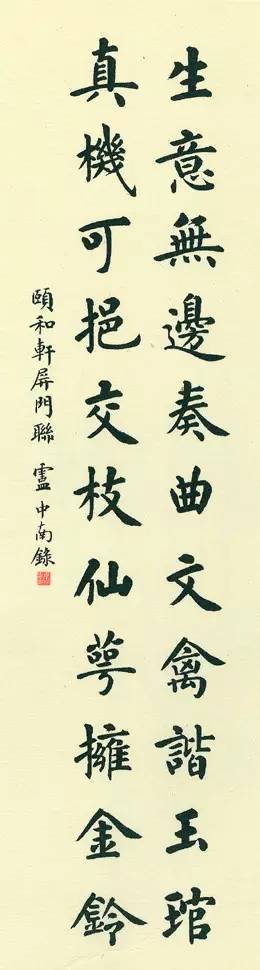 生意無邊奏曲文禽諧玉琯
真機可挹交枝仙萼擁金鈴
頤和軒屏門聯 盧中南錄